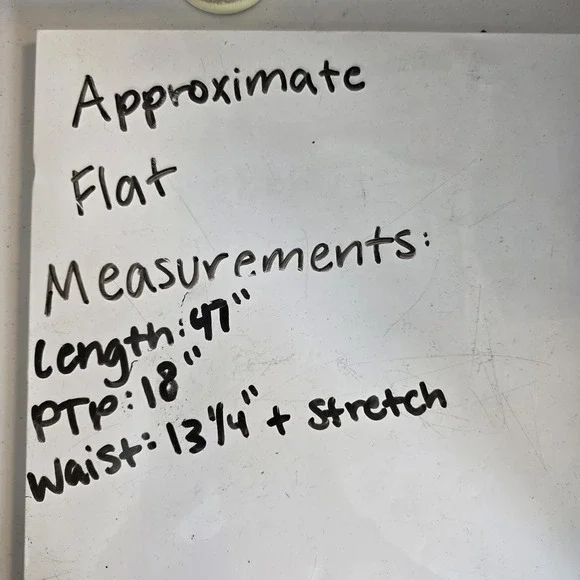 Approximate
Flat
Measurements:
Length: 47"
PTP: 18"
Waist: 13 1/4" + Stretch